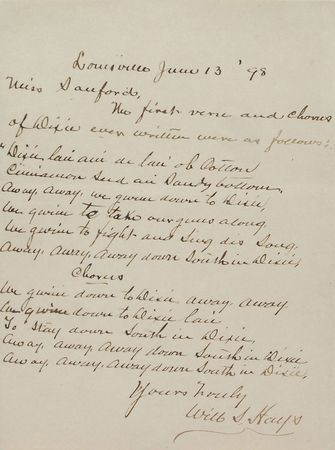 Louisville June 13 '98
Miss Sanford,
The first verse and chorus
of Dixie ever written were as follows:
"Dixie lan am de lan' ob Cotton
Cinnamon seed an Sandy bottom,
Away, away, we gwine down to Dixie,
We gwine to take our guns along
We gwine to fight and Sing dis Song,
Away, away, away down South in Dixie,
Chorus
We gwine down to Dixie away, away
We gwine down to Dixie lan
To Stay down South in Dixie,
Away, away, away down South in Dixie
Away, away, away down South in Dixie,
Yours truly
Will S. Hays